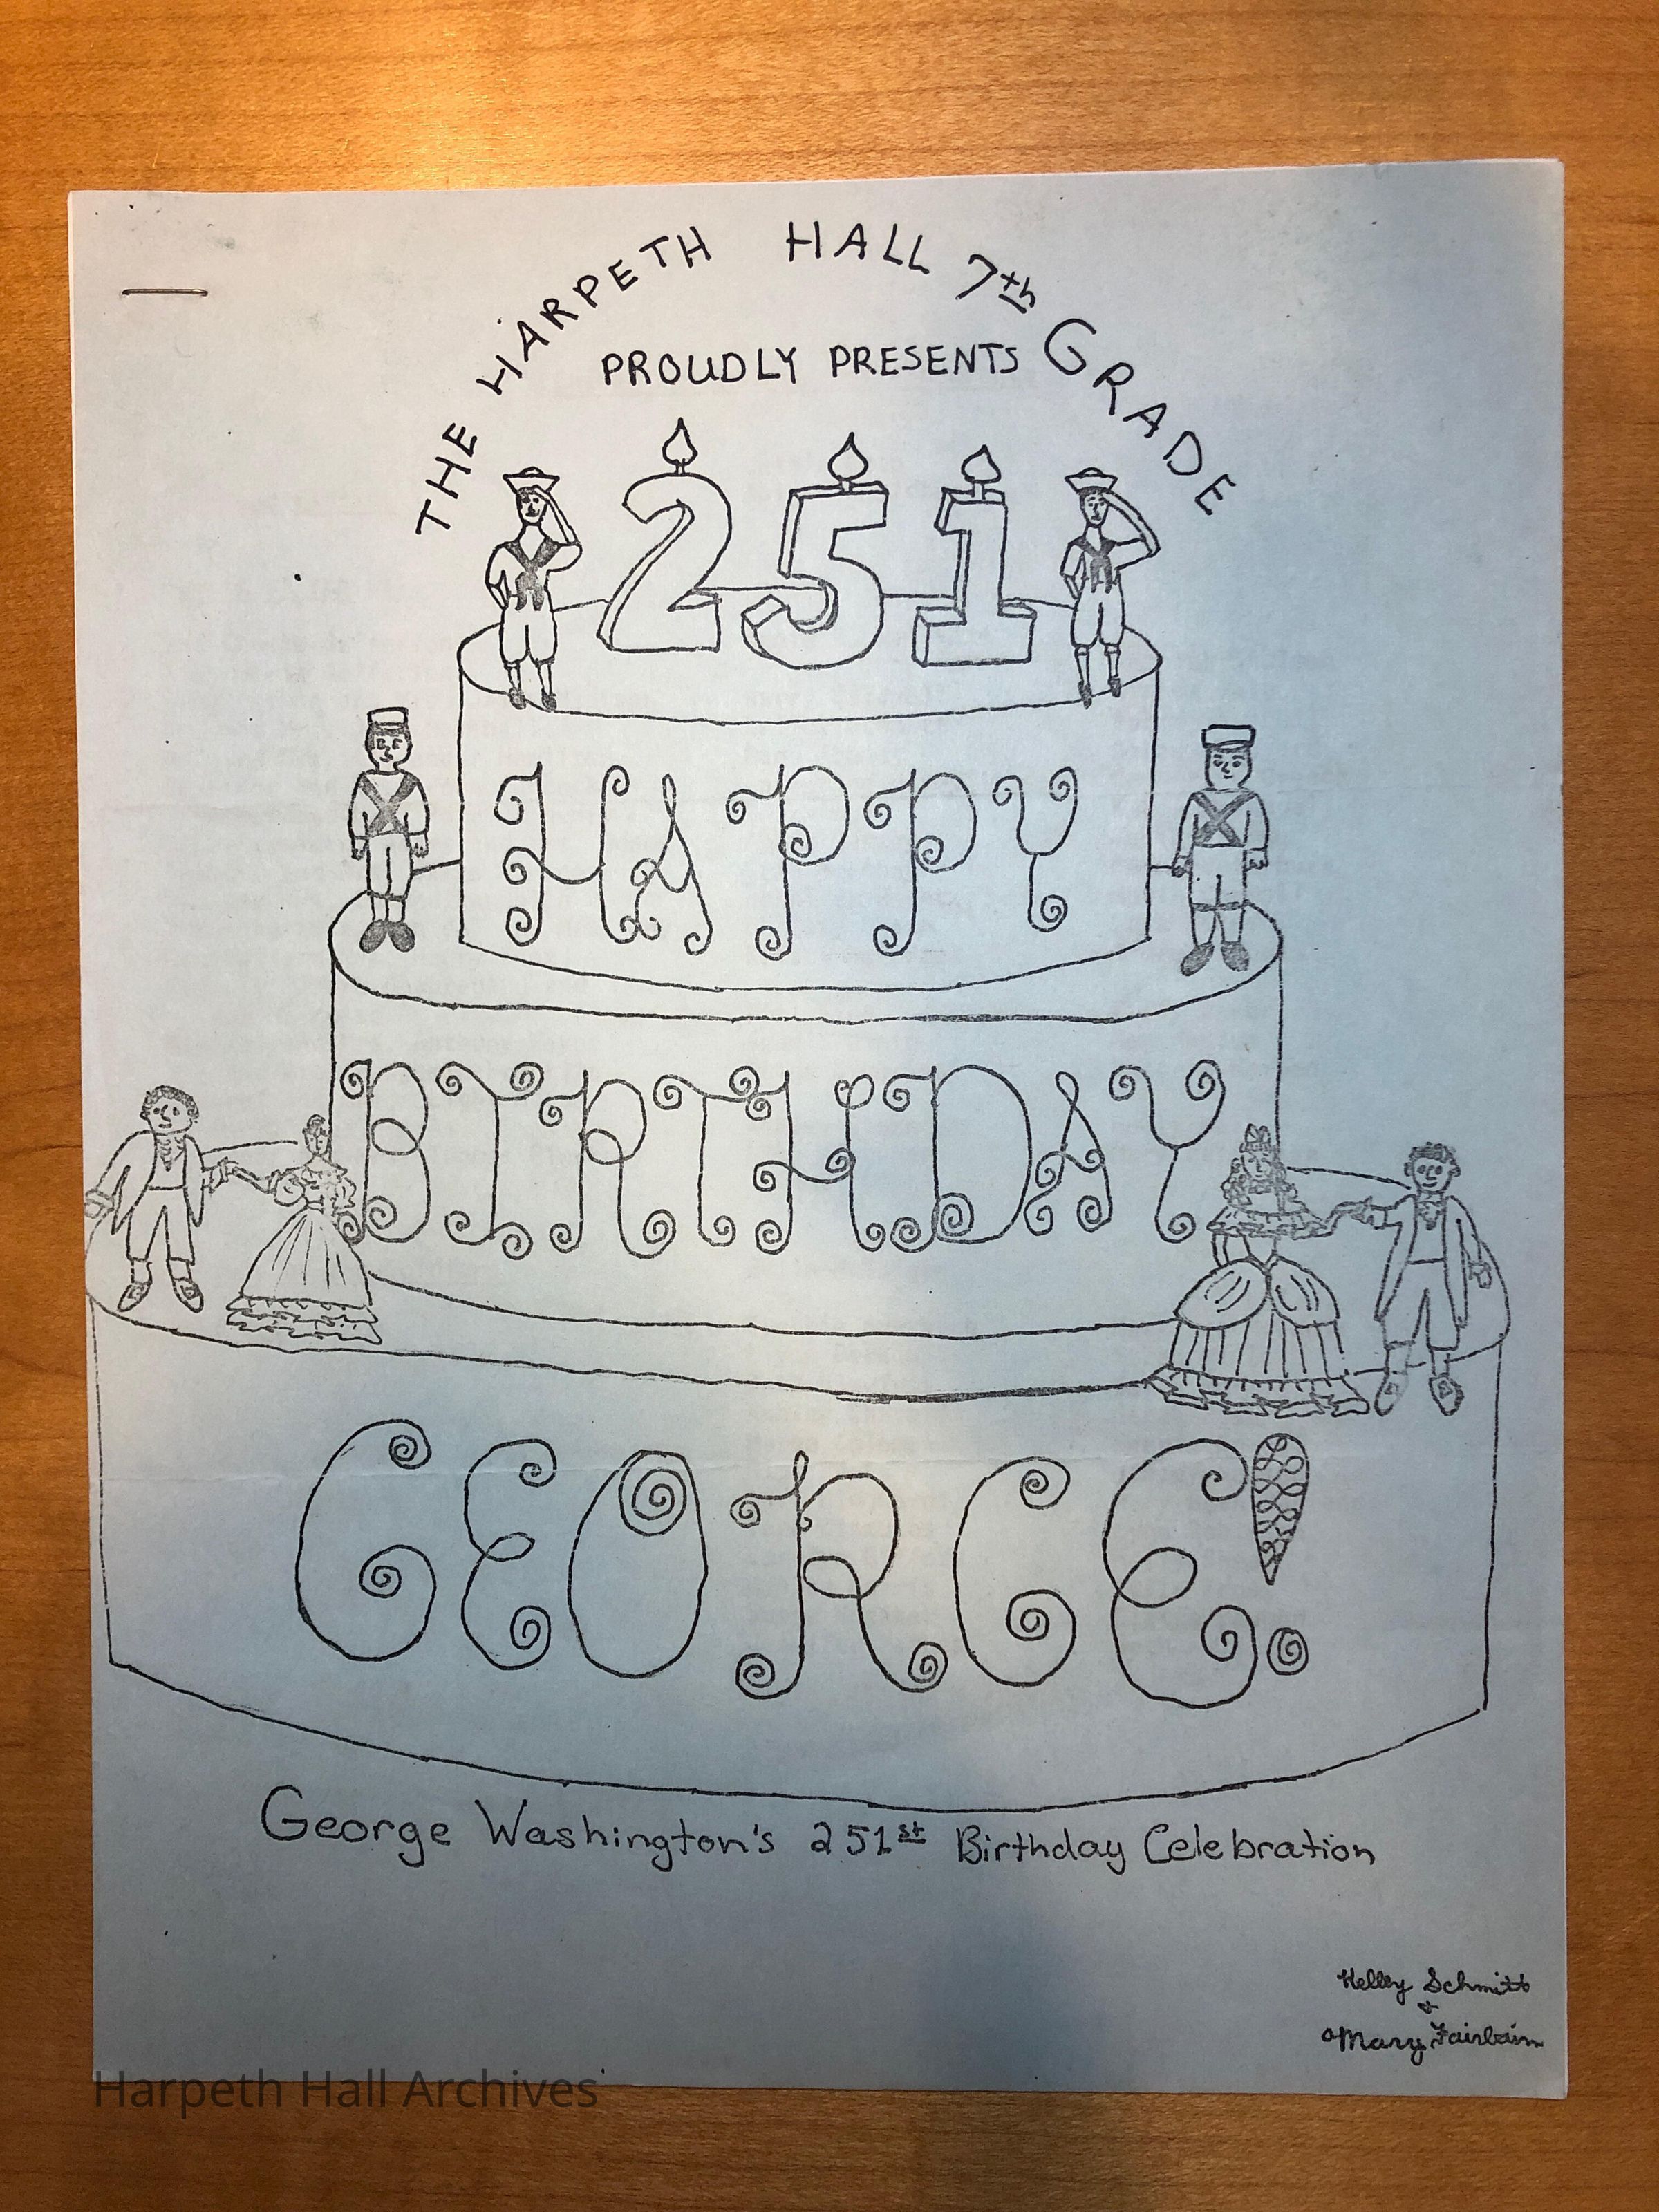 THE HARPETH HALL 7th GRADE
PROUDLY PRESENTS
251
HAPPY
BIRTHDAY
GEORGE!
George Washington's 251st Birthday Celebration
Kelley Schmitt
+
Mary Fairbairn
Harpeth Hall Archives